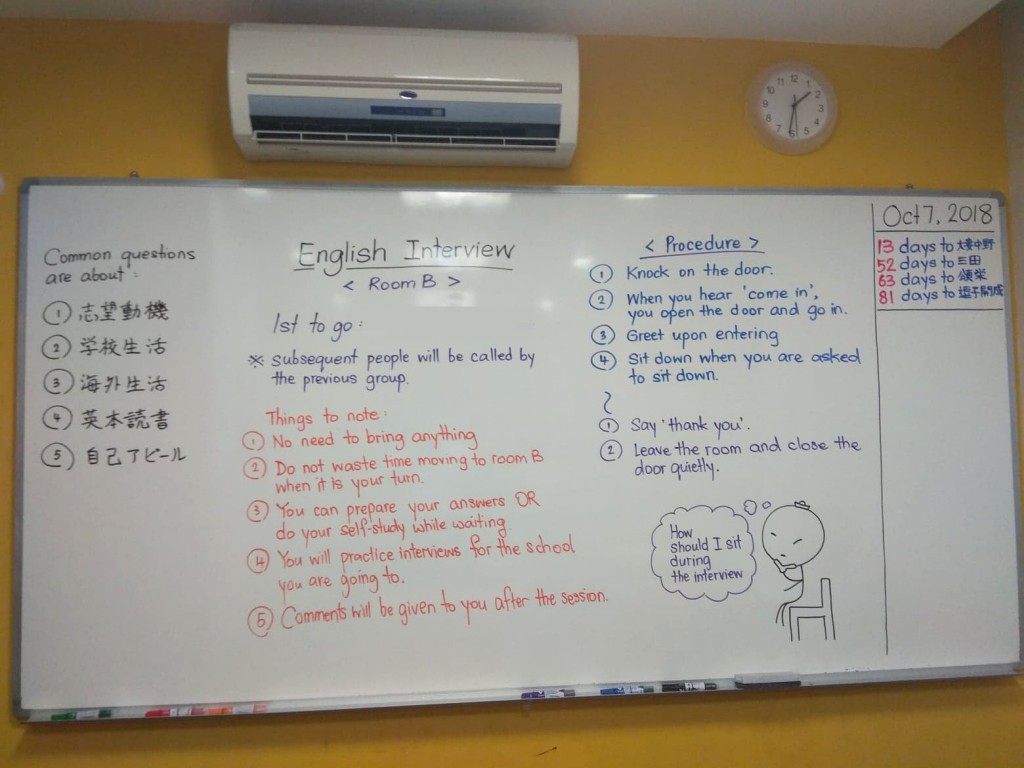 Common questions
are about:
① 志望動機
② 学校生活
③ 海外生活
④ 英本読書
⑤ 自己アピール
English Interview
< Room B >
1st to go:
※ Subsequent people will be called by
the previous group.
Things to note:
① No need to bring anything
② Do not waste time moving to room B
when it is your turn.
③ You can prepare your answers OR
do your self-study while waiting.
④ You will practice interviews for the school
you are going to.
⑤ Comments will be given to you after the session.
< Procedure >
① Knock on the door.
② When you hear 'come in',
you open the door and go in.
③ Greet upon entering
④ Sit down when you are asked
to sit down.
① Say 'thank you'.
② Leave the room and close the
door quietly.
How
should I sit
during
the interview
Oct 7, 2018
13 days to 大妻中野
52 days to 三田
63 days to 頌栄
81 days to 逗子開成
12
1
2
3
4
5
6
7
8
9
10
11